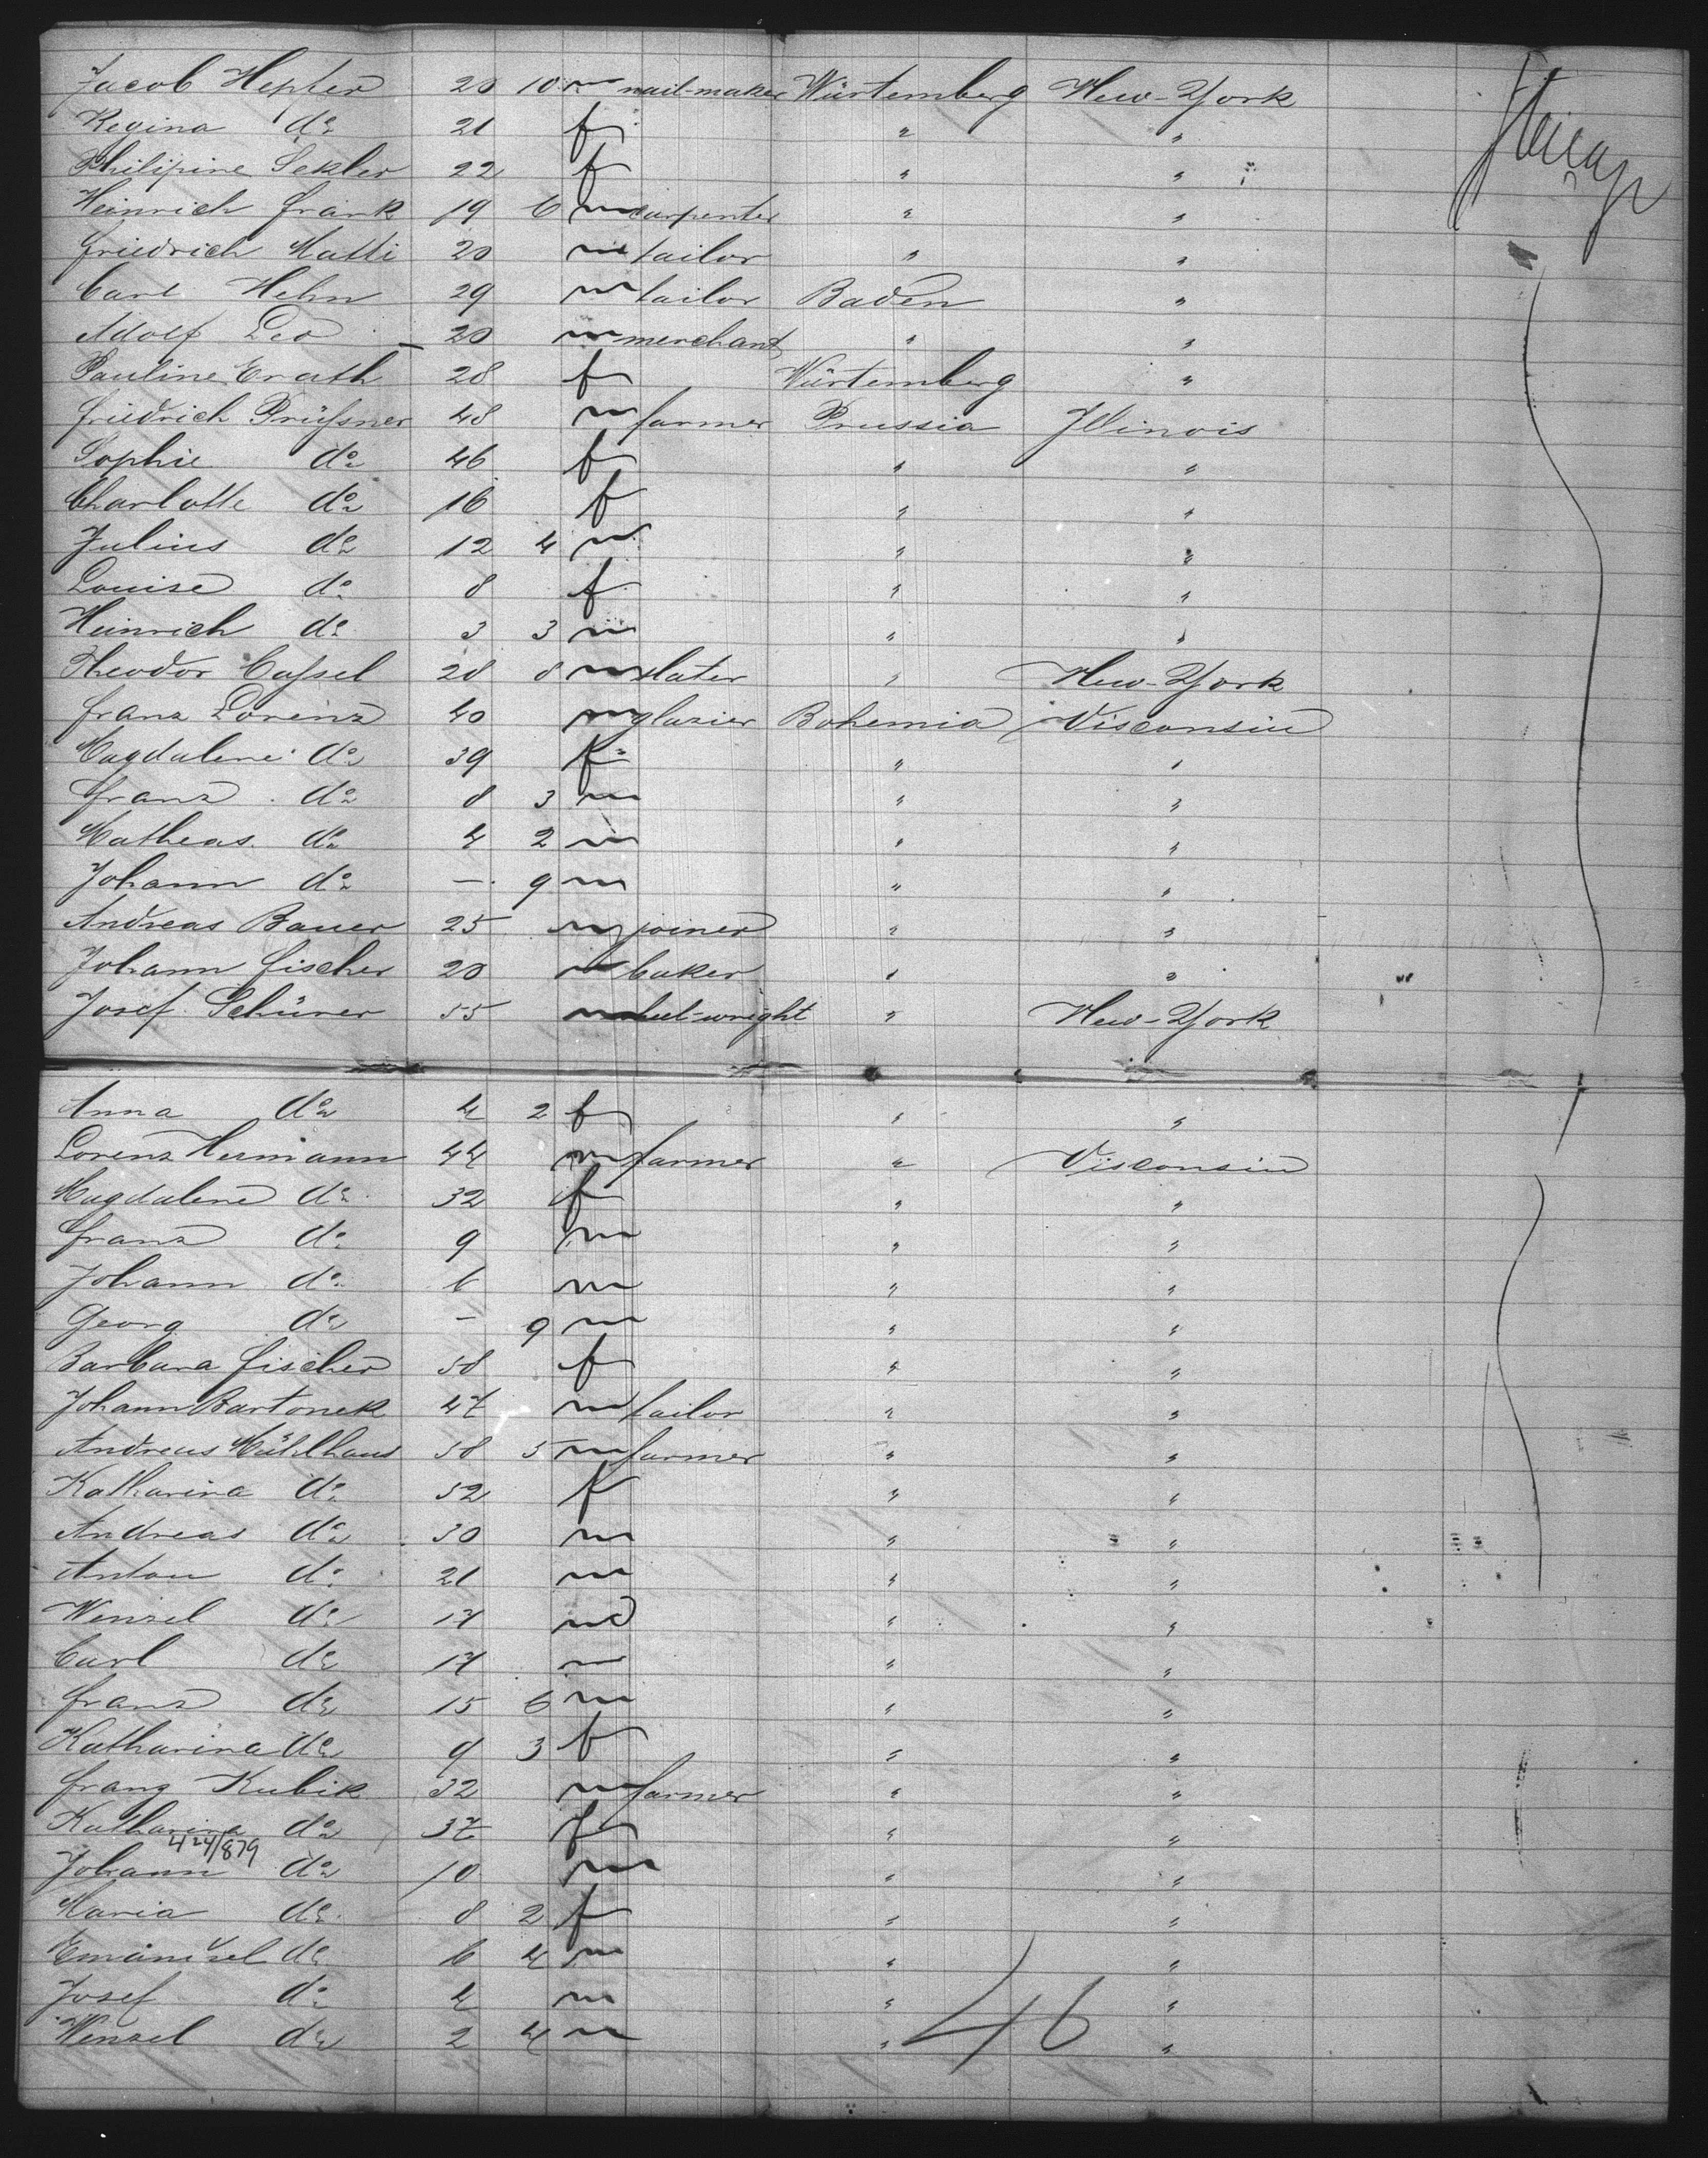 Jacob Hepfer 20 10 m nail-maker Würtemberg New-York
Regina do 21 f " "
Philipine Sekler 22 f " "
Heinrich Frank 19 6 m carpenter " "
Friedrich Matti 20 m tailor " "
Carl Hehn 29 m tailor Baden "
Adolf Leo 20 m merchant " "
Pauline Erath 28 f Würtemberg "
Friedrich Prüfsner 48 m farmer Prussia Illinois
Sophie do 46 f " "
Charlotte do 16 f " "
Julius do 12 4 m " "
Louise do 8 f " "
Heinrich do 3 3 m " "
Theodor Cafsel 28 8 m slater " New-York
Franz Lorenz 40 m glazier Bohemia Visconsin
Magdalene do 39 f " "
Franz do 8 3 m " "
Matheas do 4 2 m " "
Johann do — 9 m " "
Andreas Bauer 25 m joiner " "
Johann Fischer 20 m baker " "
Josef Schürer 55 m " New-York
Anna do 4 2 f " "
Lorenz Hermann 44 m farmer " Visconsin
Magdalene do 32 f " "
Franz do 9 m " "
Johann do 6 m " "
Georg do — 9 m " "
Barbara Fischer 58 f " "
Johann Bartonek 47 m tailor " "
Andreas Mühlhaus 58 5 m farmer " "
Katharina do 52 f " "
Andreas do 30 m " "
Anton do 21 m " "
Wenzel do 17 m " "
Carl do 17 m " "
Franz do 15 6 m " "
Katharina do 9 3 f " "
Franz Kubik 32 m farmer " "
Katharina do 37 f " "
424/879
Johann do 10 m " "
Maria do 8 2 f " "
Emanuel do 6 4 m " "
Josef do 4 m " "
Wenzel do 2 4 m " "
46